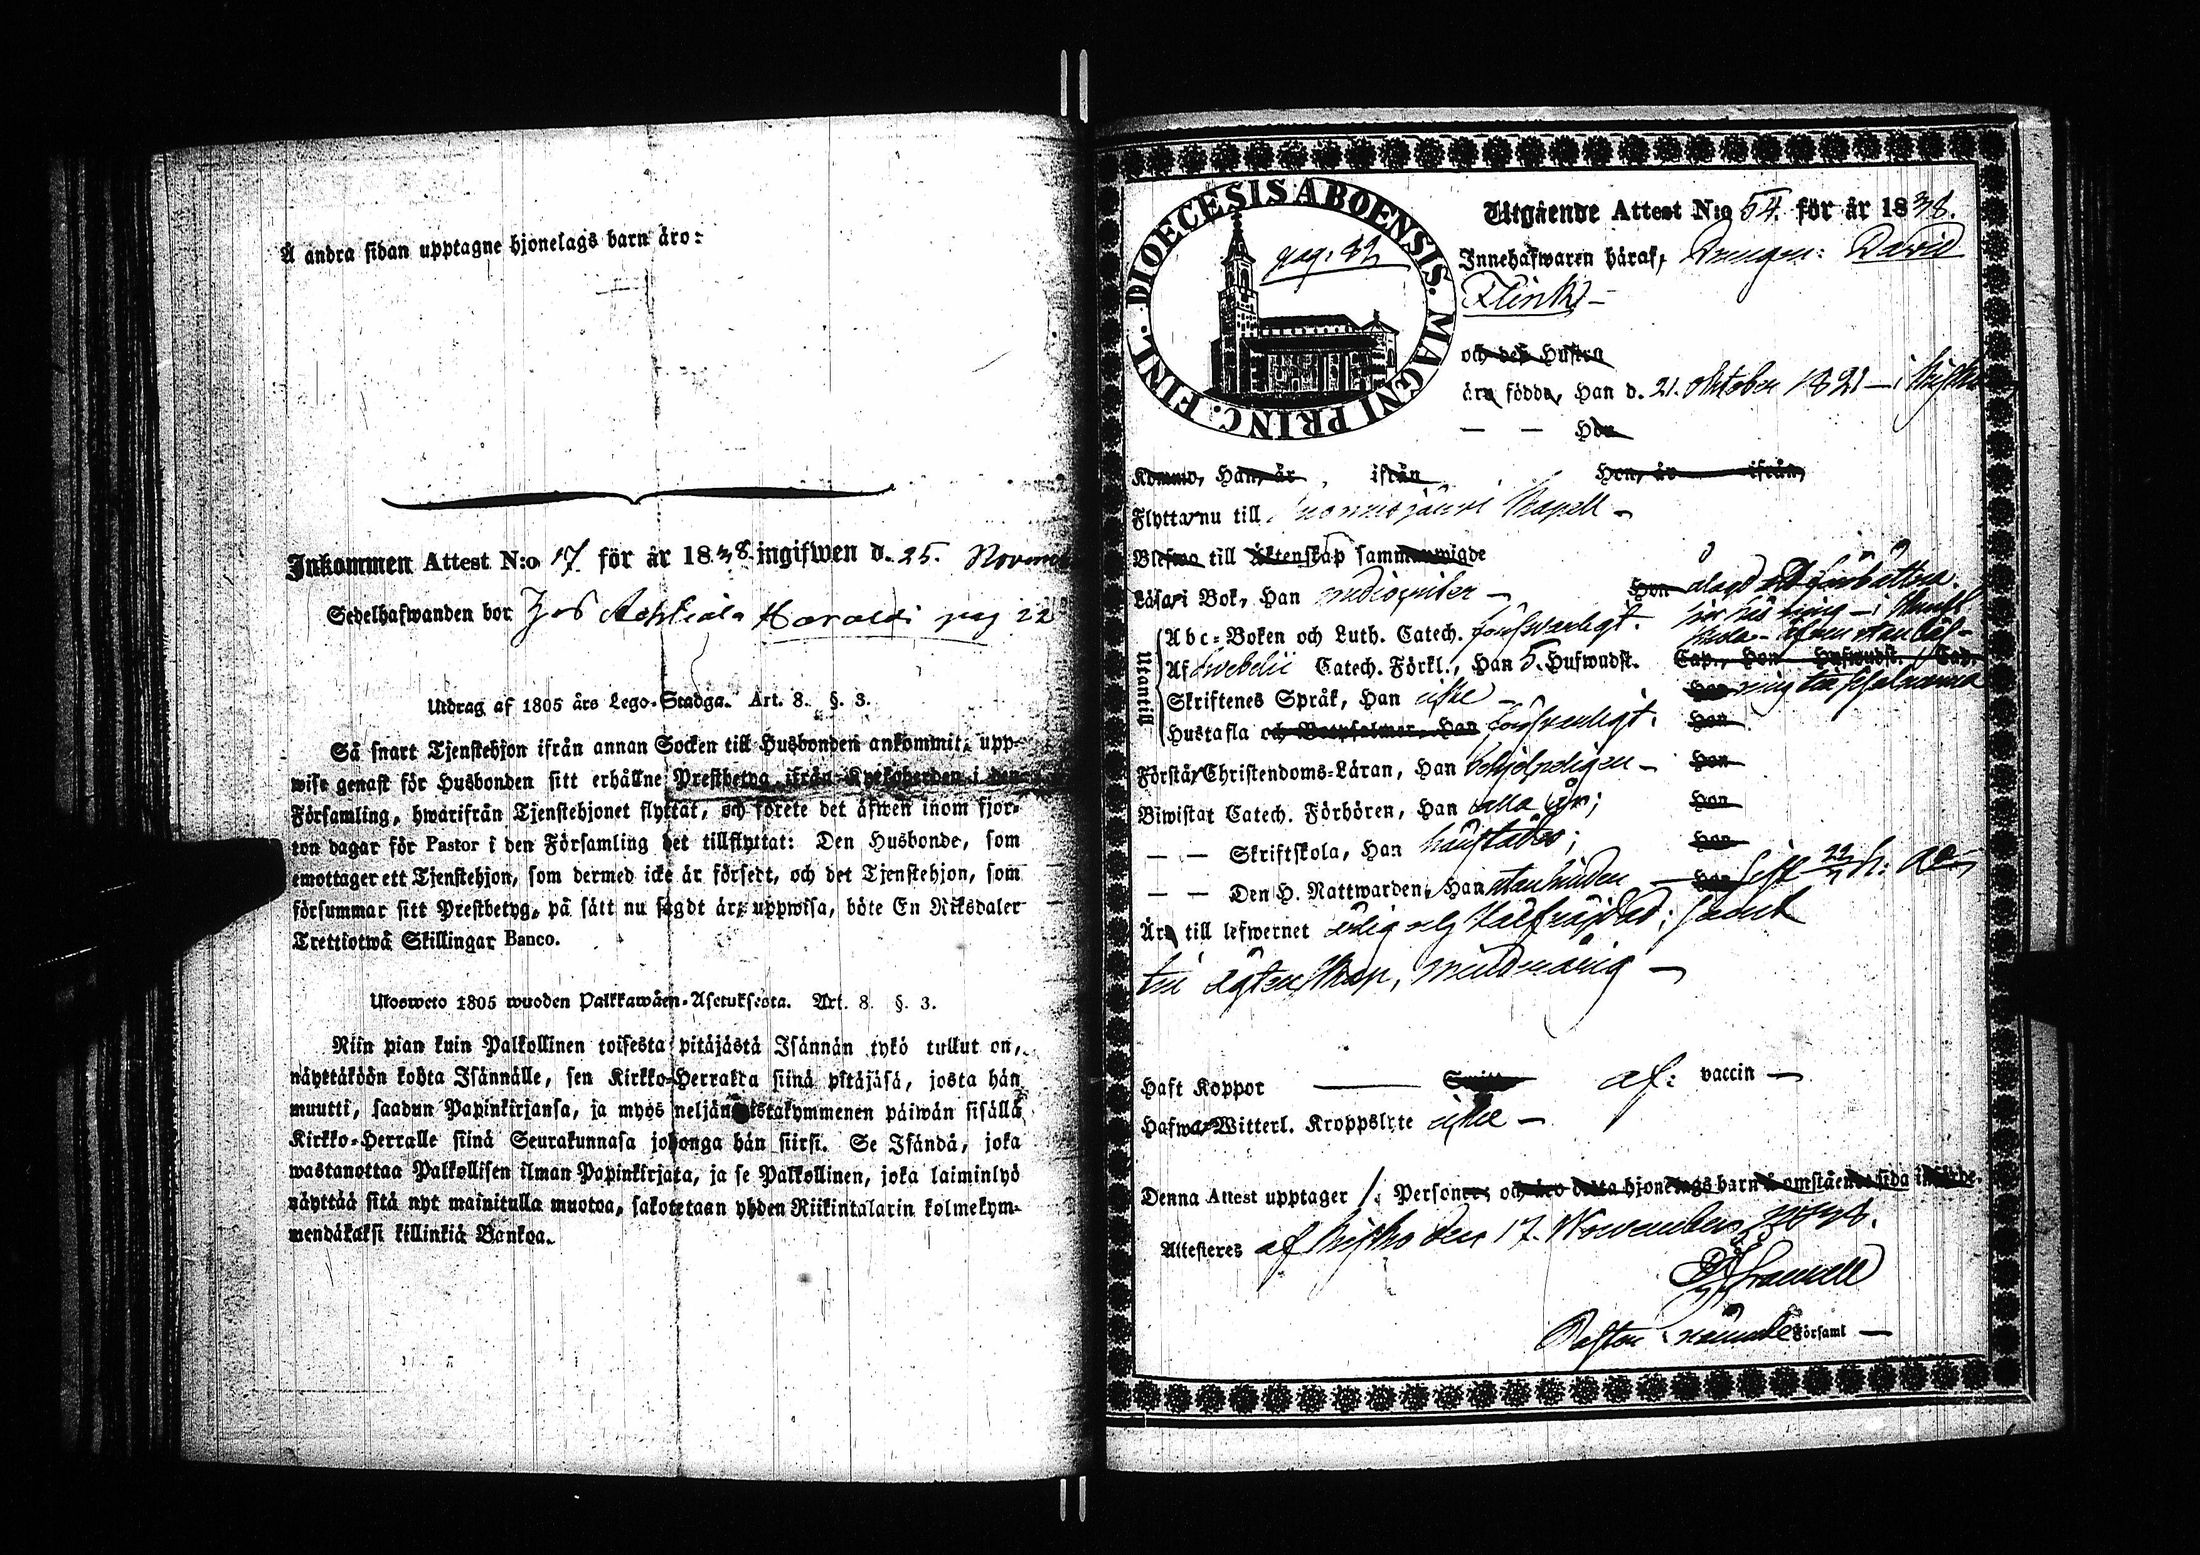 Å andra sidan upptagne hjonelags barn äro:
Inkommen Attest N:o 17 för år 1838 ingifwen d. 25. Novem
Sedelhafwanden bor hos Haraldi pag 22
Utdrag af 1805 års Lego-Stadga. Art. 8. §. 3.
Så snart Tjenstehjon ifrån annan Socken till Husbonden ankommit, upp-
wise genast för Husbonden sitt erhållne Prestbetyg ifrån Kyrkoherden i den
Församling, hwarifrån Tjenstehjonet flyttat, och förete det äfwen inom fjor-
ton dagar för Pastor i den Församling det tillflyttat: Den Husbonde, som
emottager ett Tjenstehjon, som dermed icke är försedt, och det Tjenstehjon, som
försummar sitt Prestbetyg, på sätt nu sagdt är, uppwisa, böte En Riksdaler
Trettiotwå Skillingar Banco.
Ulosweto 1805 wuoden Palkkawäen-Asetuksesta. Art. 8. §. 3.
Niin pian kuin Palkollinen toisesta pitäjästä Isännän tykö tullut on,
näyttäköön kohta Isännälle, sen Kirkko-Herralta siinä pitäjäsä, josta hän
muutti, saadun Papinkirjansa, ja myös neljäntoistakymmenen päiwän sisällä
Kirkko-Herralle siinä Seurakunnasa johonga hän siirsi. Se Isändä, joka
wastanottaa Palkollisen ilman Papinkirjata, ja se Palkollinen, joka laiminlyö
näyttää sitä nyt mainitulla muotoa, sakotetaan yhden Riikintalarin kolmekym-
mendäkaksi killinkiä Bankoa.
DIOECESIS ABOENSIS. MAGNI PRINC. FINL.
pag. 42
Utgående Attest N:o 54. för år 1838.
Innehafwaren häraf, Drengen: David
Flink
och des Hustru
äro födde, Han d. 21. Oktober 1821 — i
— — Hon
Kommo, Han, år , ifrån Hon, år ifrån,
Flytta nu till Kapell —
Blefwo till Äktenskap sammanwigde
Läsa i Bok, Han mediocriter — Hon ålagd att förbättra
Abc-Boken och Luth. Catech. försvarligt.
Af Svebelii Catech. Förkl., Han 5. Hufwudst. Cap., Hon Hufwudst. Cap.
Utantill
Skriftenes Språk, Han icke — Hon
Hustafla och Botpsalmer, Han försvarligt. Hon
Förstå Christendoms-Läran, Han behjelpeligen — Hon
Biwistat Catech. Förhören, Han alla år; Hon
— — Skriftskola, Han Hon
— — Den H. Nattwarden, Han utan hinder — Hon sist 22/7 h: a:
Äro till lefwernet ärlig och välfräjdad; samt
till ägtenskap, mindreårig —
Haft Koppor —— Smitt af: vaccin —
Hafwa Witterl. Kroppslyte icke —
Denna Attest upptager 1. Personer; och äro detta hjonelags barn å omstående sida införde.
Attesteres af den 17. November 1838.
Pastor i nämnde Församl —